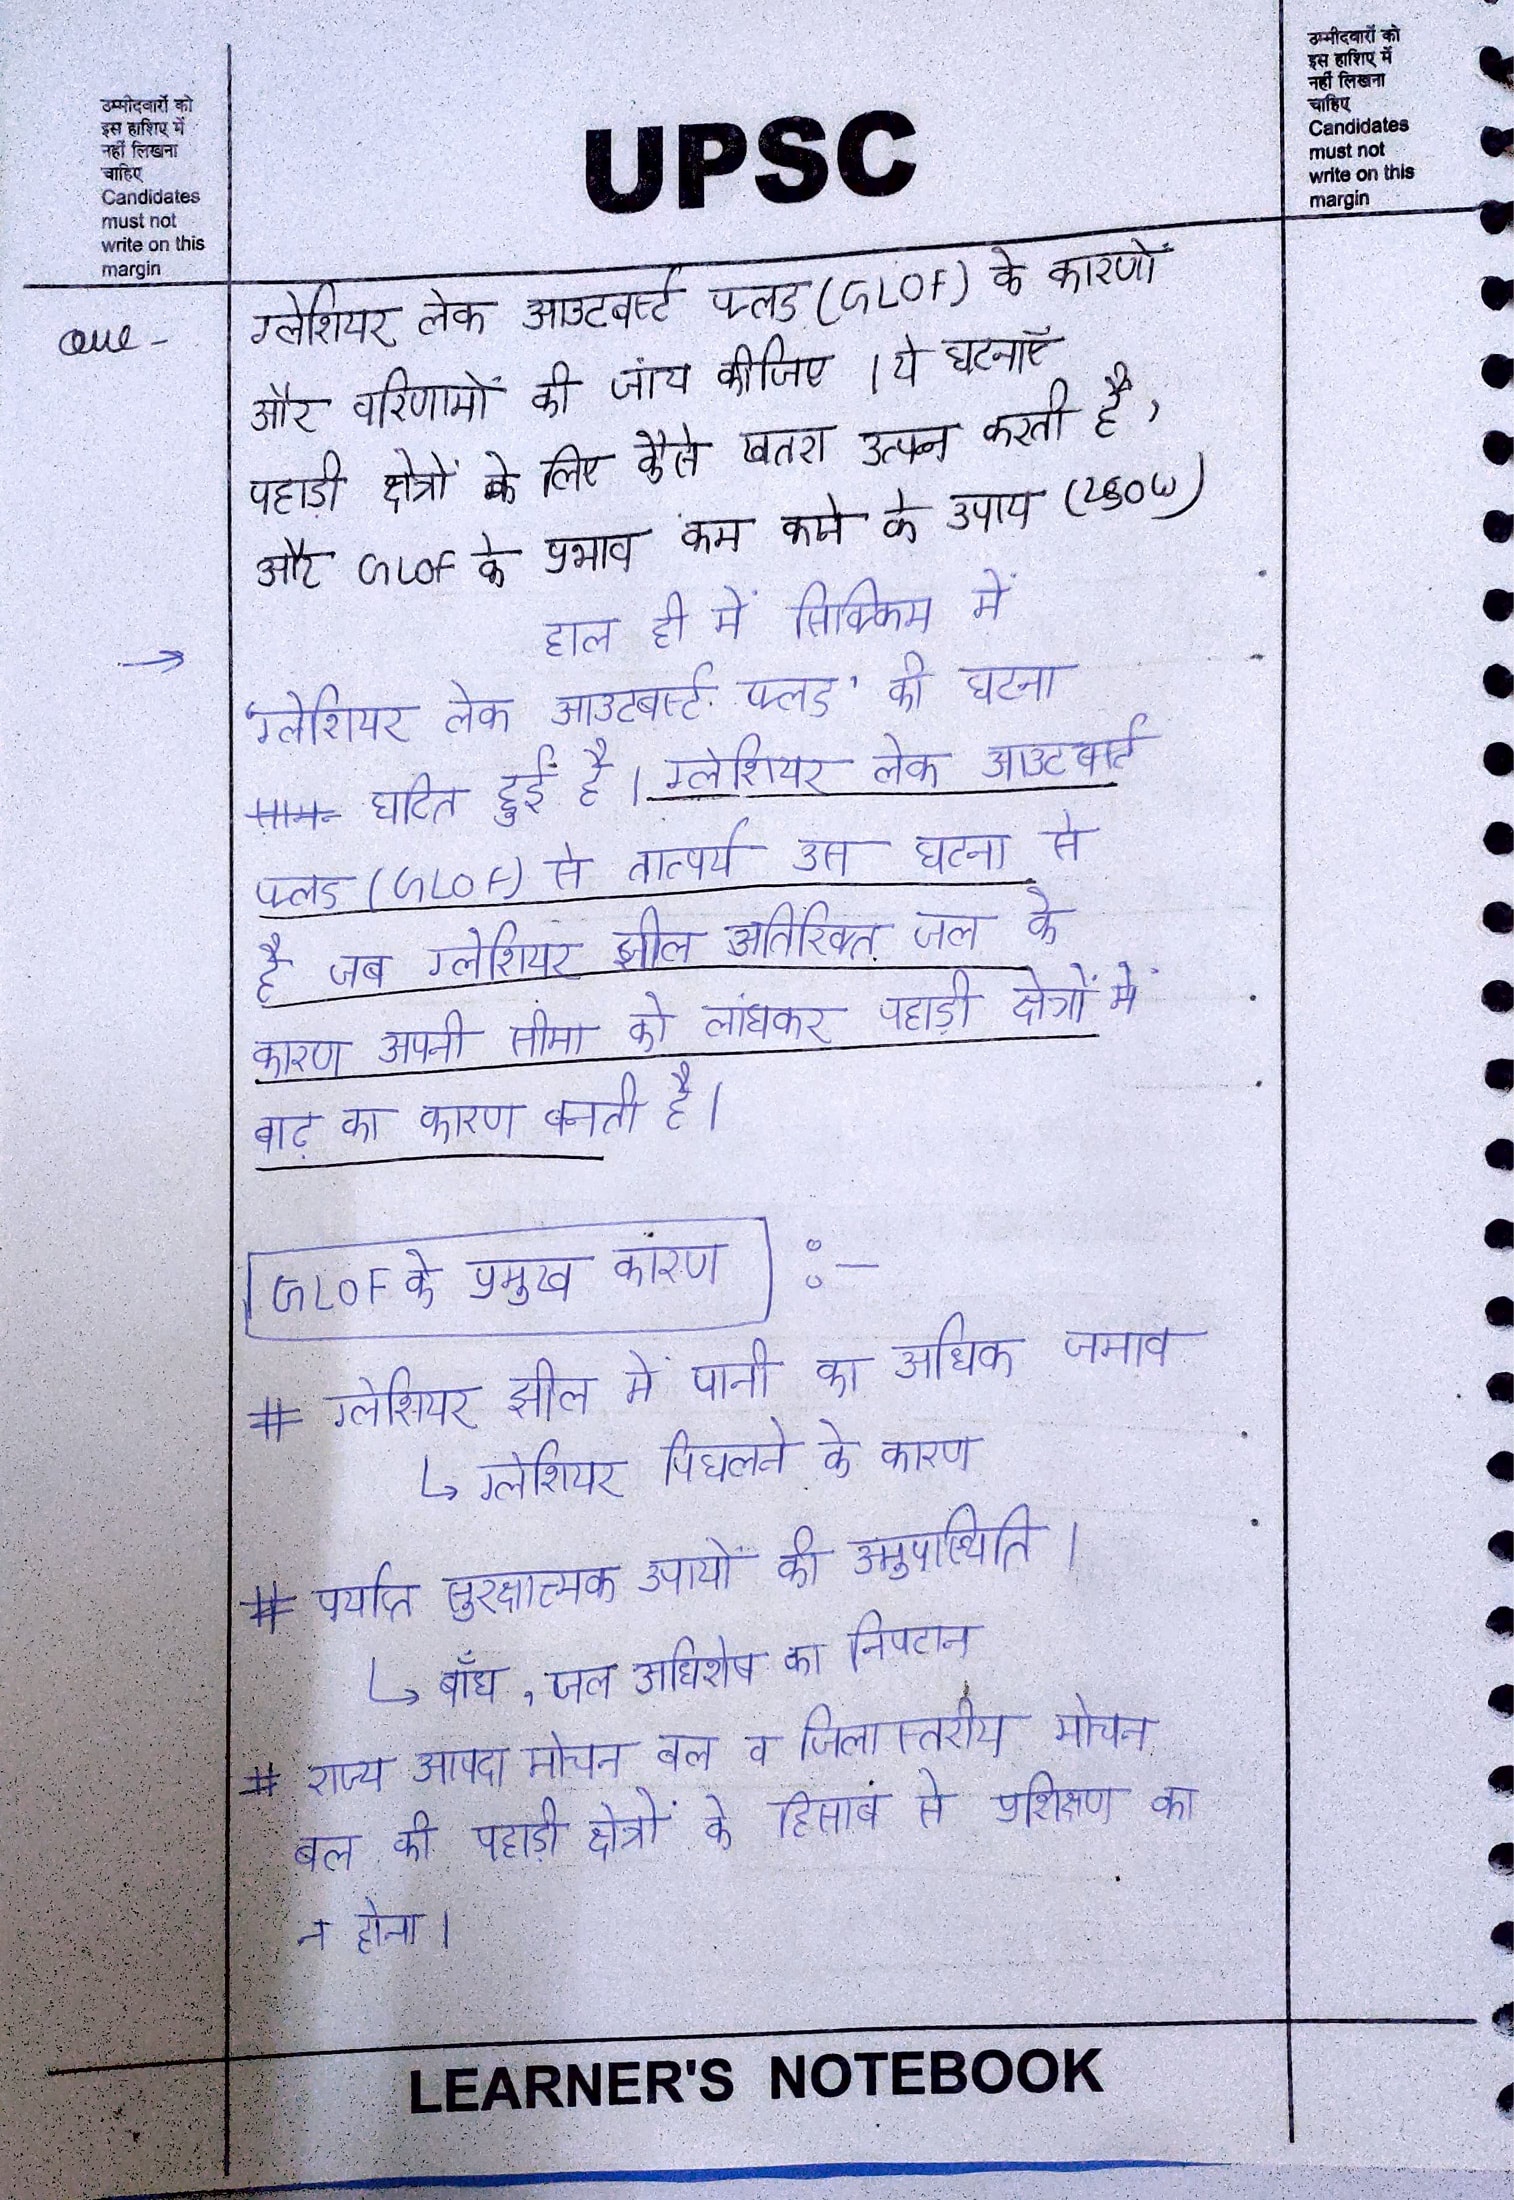 उम्मीदवारों को
इस हाशिए में
नहीं लिखना
चाहिए
Candidates
must not
write on this
margin
UPSC
उम्मीदवारों को
इस हाशिए में
नहीं लिखना
चाहिए
Candidates
must not
write on this
margin
Que - ग्लेशियर लेक आउटबर्स्ट फ्लड (GLOF) के कारणों
और परिणामों की जांच कीजिए । ये घटनाएँ
पहाड़ी क्षेत्रों के लिए कैसे खतरा उत्पन्न करती है,
और GLOF के प्रभाव कम करने के उपाय (250W)
→ हाल ही में सिक्किम में
'ग्लेशियर लेक आउटबर्स्ट फ्लड' की घटना
घटित हुई है । ग्लेशियर लेक आउटबर्स्ट
फ्लड (GLOF) से तात्पर्य उस घटना से
है जब ग्लेशियर झील अतिरिक्त जल के
कारण अपनी सीमा को लांघकर पहाड़ी क्षेत्रों में
बाढ़ का कारण बनती है ।
GLOF के प्रमुख कारण :-
# ग्लेसियर झील में पानी का अधिक जमाव
↳ ग्लेशियर पिघलने के कारण
# पर्याप्त सुरक्षात्मक उपायों की अनुपस्थिति ।
↳ बाँध , जल अधिशेष का निपटान
# राज्य आपदा मोचन बल व जिलास्तरीय मोचन
बल की पहाड़ी क्षेत्रों के हिसाब से प्रशिक्षण का
न होना ।
LEARNER'S NOTEBOOK